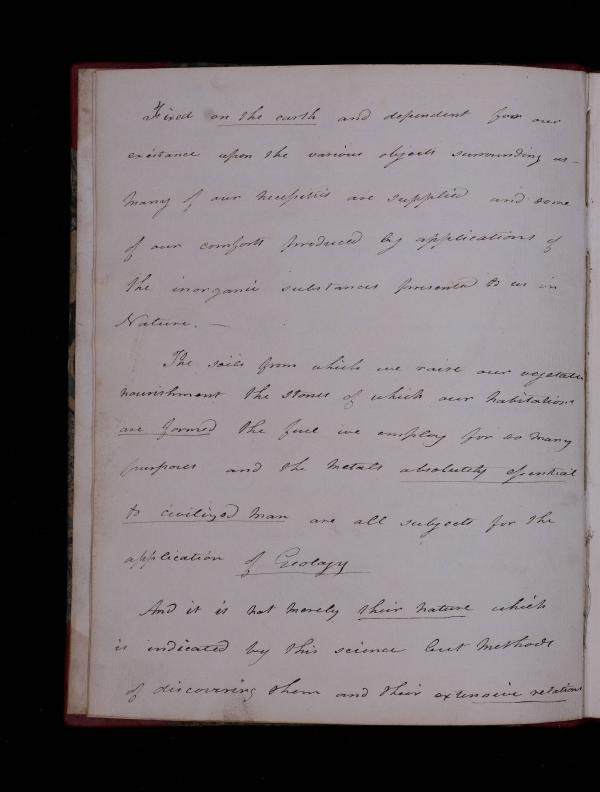 Fixed on the earth and dependent for our
existance upon the various objects surrounding us –
many of our necessities are supplied and some
of our comforts produced by applications of
the inorganic substances presented to us in
Nature. —
The soils from which we raise our vegetable
nourishment the stones of which our habitations
are formed the fuel we employ for so many
purposes and the metals absolutely essential
to civilized man are all subjects for the
application of Geology
And it is not merely their nature which
is indicated by this science but methods
of discovering them and their extensive relations